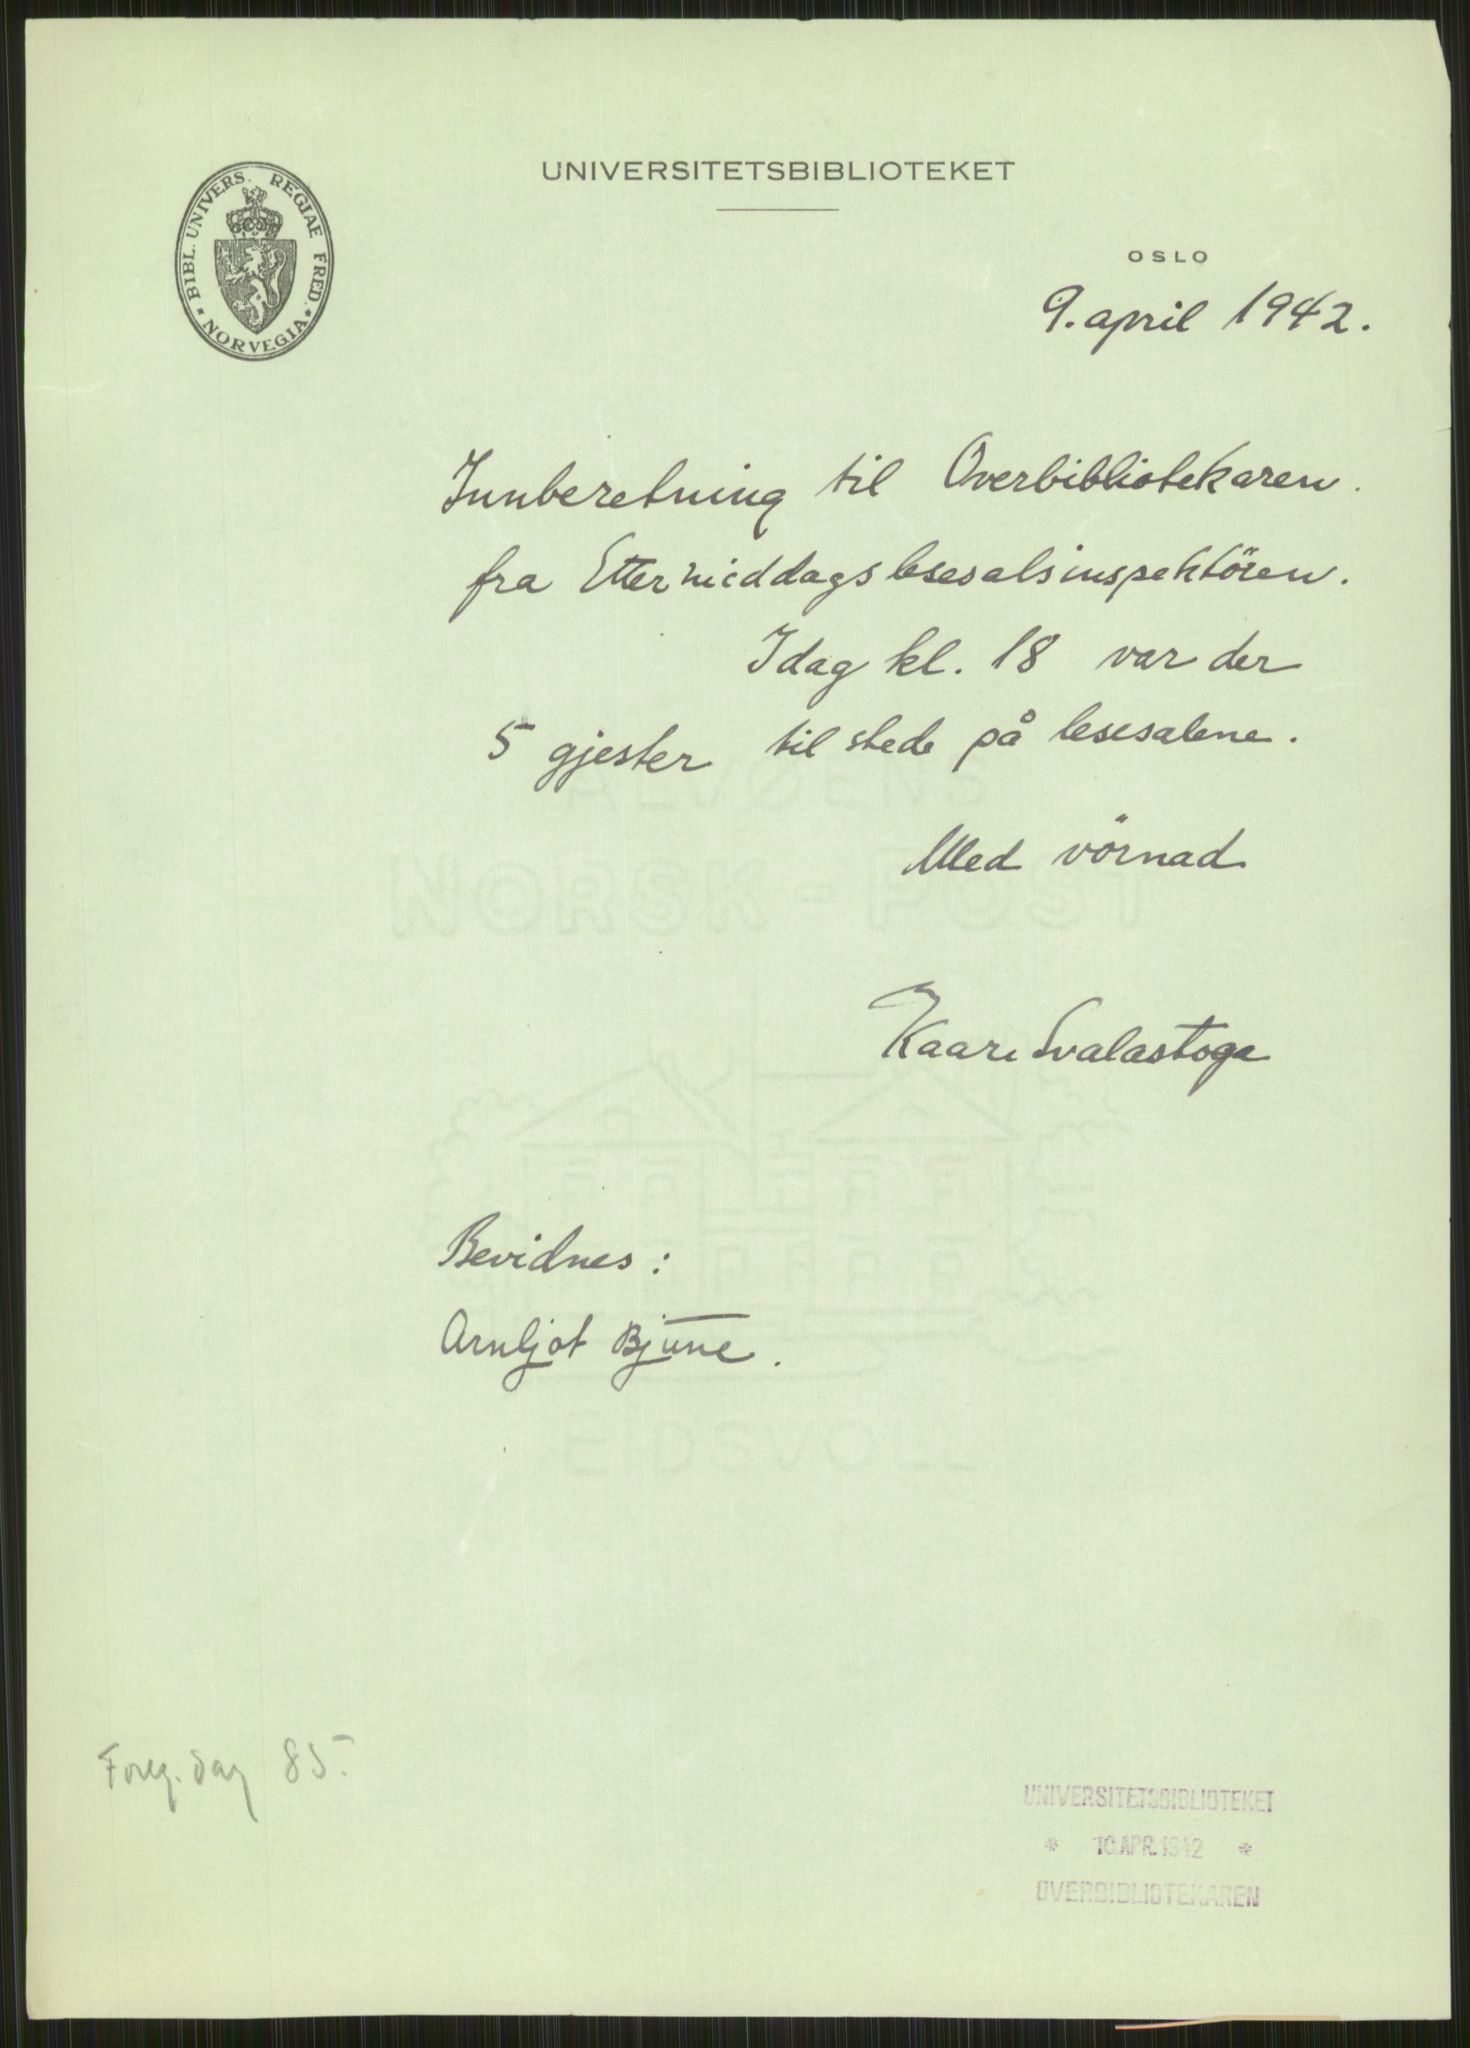 UNIVERSITETSBIBLIOTEKET
BIBL. UNIVERS. REGIAE FRED. * NORVEGIA *
OSLO
9. april 1942.
Innberetning til Overbibliotekaren
fra Ettermiddagslesesalsinspektören.
Idag kl. 18 var der
5 gjester til stede på lesesalene.
Med vörnad
Kaare Svalastoga
Bevidnes:
Arnljot Bjune.
Foreg. dag 85.
UNIVERSITETSBIBLIOTEKET
* 10.APR.1942 *
OVERBIBLIOTEKAREN
NORSK-POST
EIDSVOLL